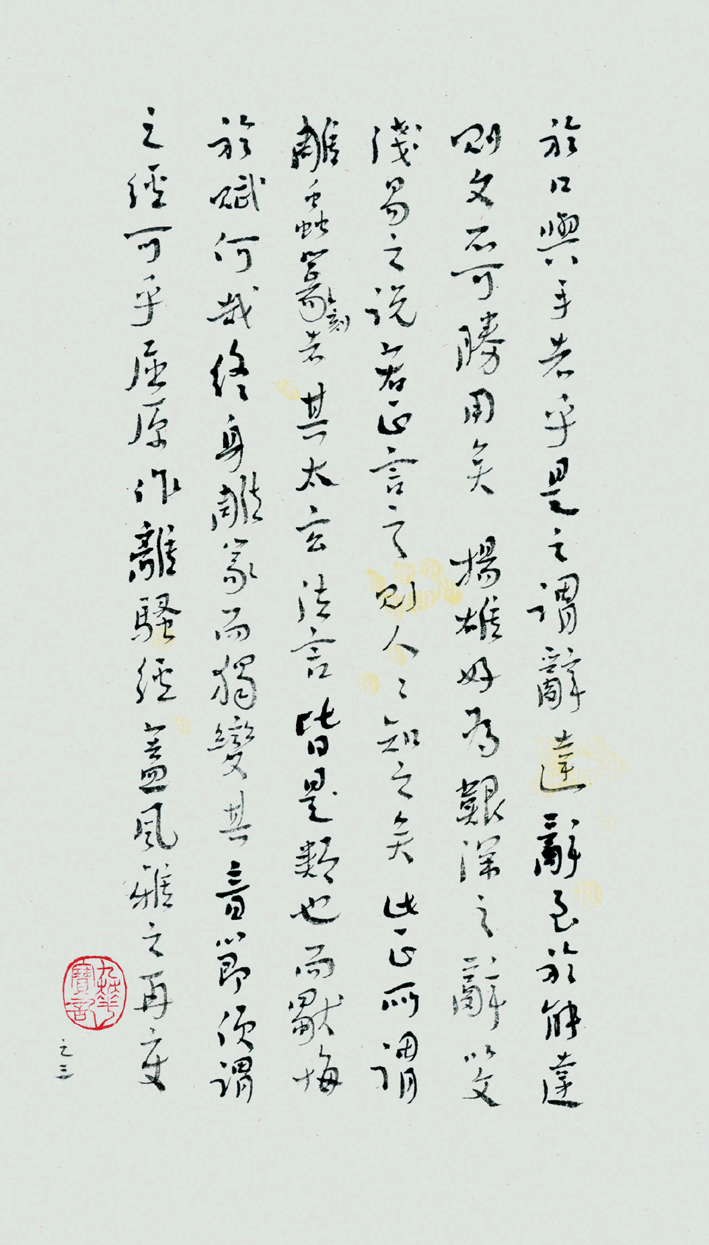 於口與手者乎是之謂辭達辭至於能達
則文不可勝用矣 揚雄好為艱深之辭以文
淺易之說若正言之則人〻知之矣此正所謂
雕蟲篆刻者其太玄法言皆是類也而獨悔
於賦何哉終身雕篆而獨變其音節便謂
之經可乎屈原作離騷經蓋風雅之再變
之三